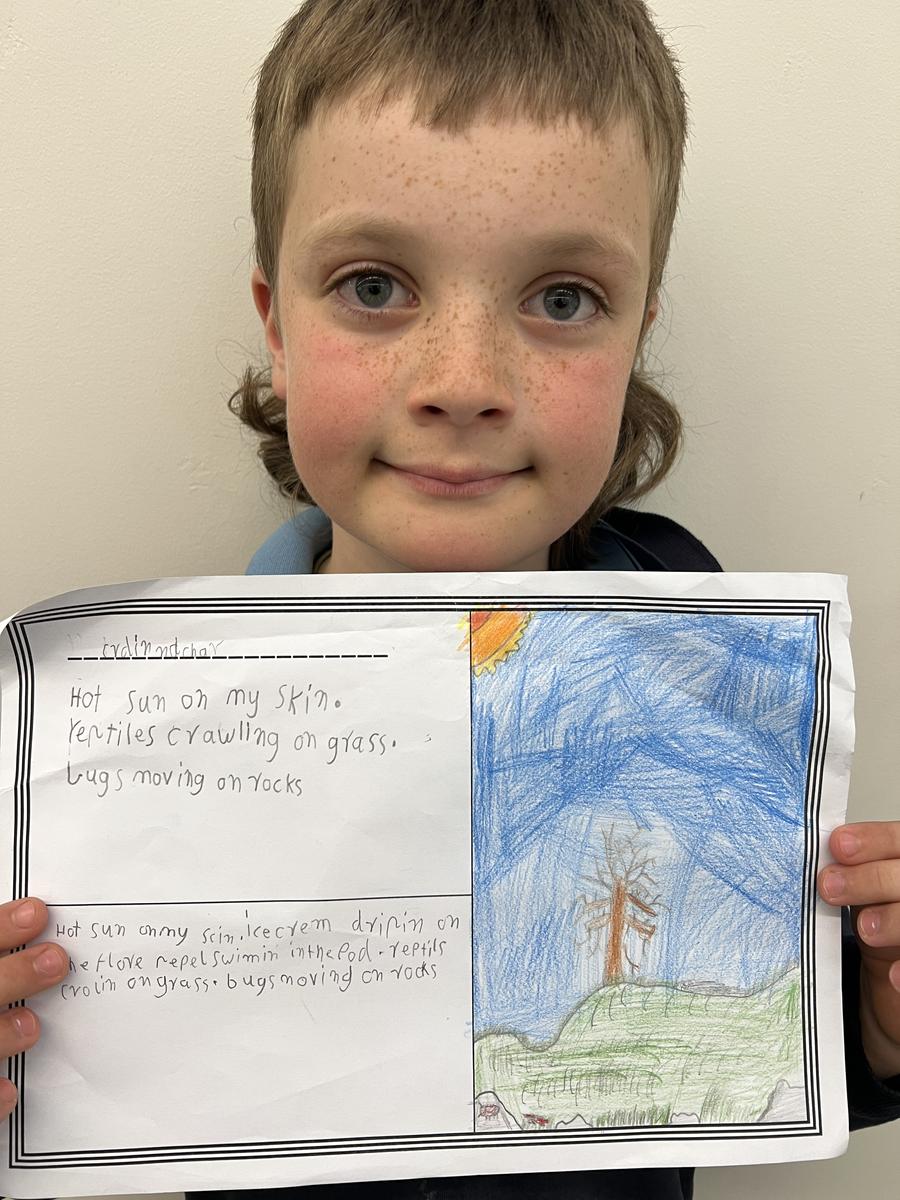 Hot sun on my skin.
reptiles crawling on grass.
bugs moving on rocks
Hot sun onmy scin. icecrem dripin on
the flore repel swimin inthe Pod. reptils
crolin on grass. bugs moving on rocks